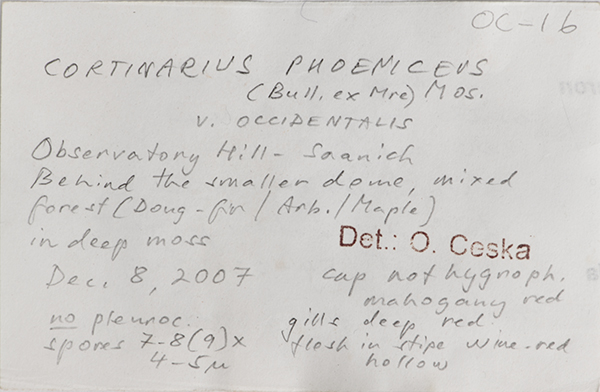 OC-16
CORTINARIUS PHOENICEUS
(Bull. ex Mre) Mos.
v. OCCIDENTALIS
Observatory Hill - Saanich
Behind the smaller dome, mixed
forest (Doug-fir / Arb. / Maple)
in deep moss
Det.: O. Ceska
Dec. 8, 2007
cap not hygroph.
mahogany red
no pleuroc.
gills deep red.
spores 7-8(9) x
4-5µ
flesh in stipe wine-red
hollow